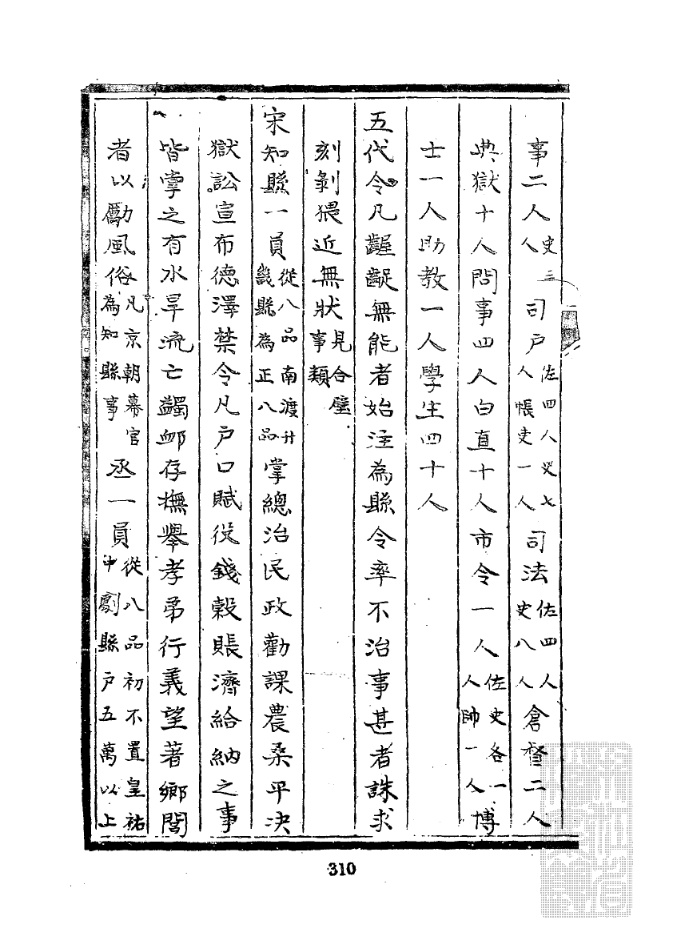 事二人史三人司戶佐四人史七人帳史一人司法佐四人史八人倉督二人
典獄十人問事四人白直十人市令一人佐史各一人帥一人博
士一人助教一人學生四十人
五代令凡齷齪無能者始注為縣令率不治事甚者誅求
刻剝猥近無狀見合璧事類
宋知縣一員從八品南渡升畿縣為正八品掌總治民政勸課農桑平決
獄訟宣布德澤禁令凡戶口賦役錢穀賑濟給納之事
皆掌之有水旱流亡蠲卹存撫舉孝弟行義望著鄉閭
者以勵風俗凡京朝幕官為知縣事丞一員從八品初不置皇祐中劇縣戶五萬以上
310